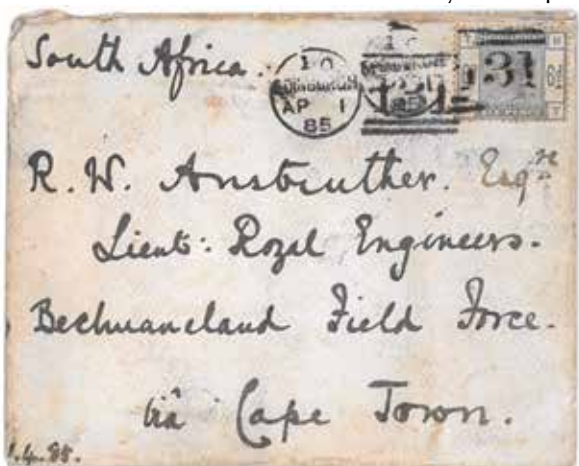 South Africa.
10
EDINBURGH
AP 1
85
131
R. W. Anstruther. Esqre
Lieut: Royal Engineers.
Bechuanaland Field Force.
viâ Cape Town.
1.4.85.